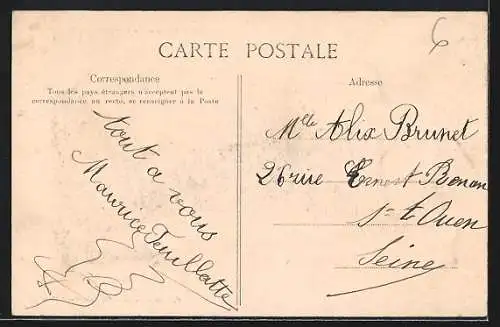 6
CARTE POSTALE
Correspondance
Tous les pays étrangers n'acceptent pas la
correspondance au recto, se renseigner à la Poste
tout a vous
Maurice Feuillatte
Adresse
Mlle Alix Brunet
26 rue Ernest Renan
St Ouen
Seine